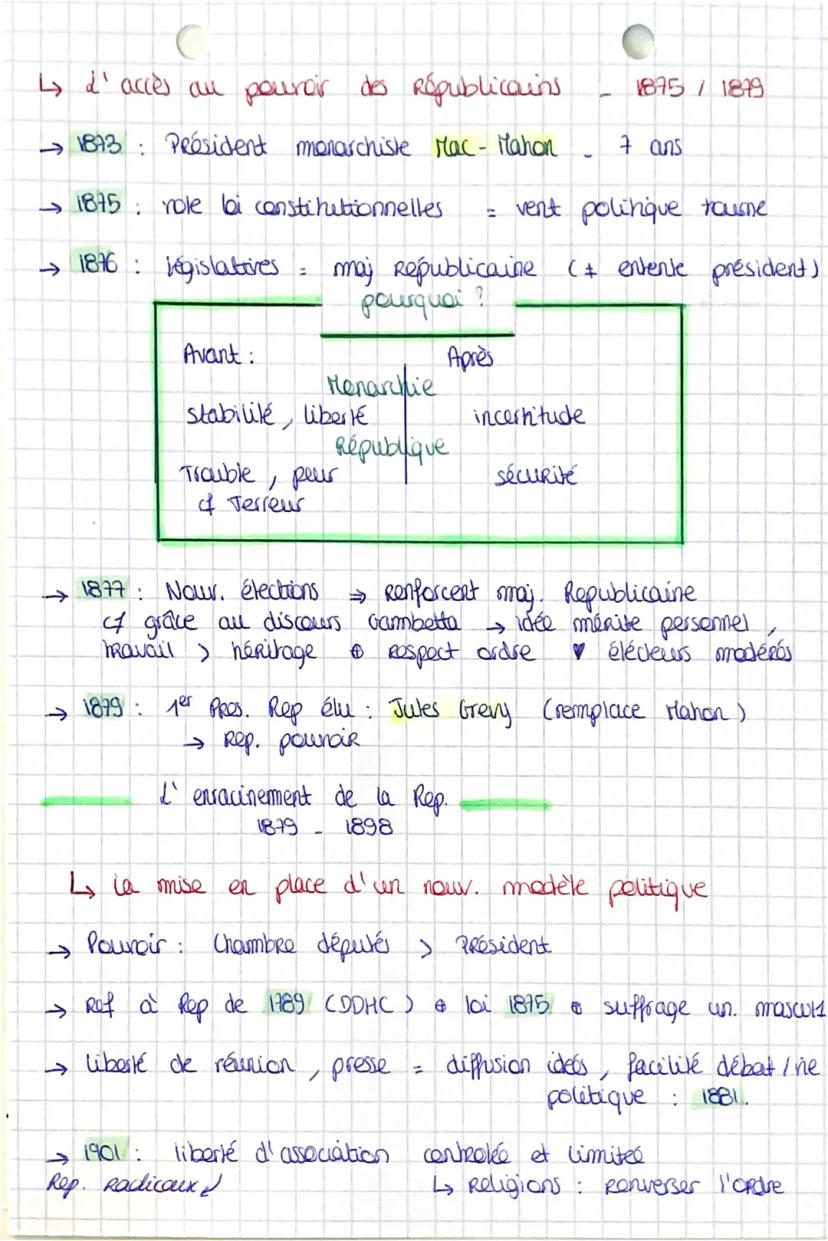 ↳ L'accès au pouvoir des Républicains - 1875 / 1879
→ 1873 : Président monarchiste Mac-Mahon - 7 ans
→ 1875 : vote loi constitutionnelles = vent politique tourne
→ 1876 : législatives = maj Républicaine (≠ entente président)
pourquoi ?
Avant : Après
Monarchie
stabilité, liberté incertitude
République
Trouble, peur sécurité
cf Terreur
→ 1877 : Nouv. élections ⇒ renforcent maj. Republicaine
cf grâce au discours Gambetta → idée mérite personnel,
travail > héritage ⊕ respect ordre ♥ élécteurs modérés
→ 1879 : 1er Pres. Rep élu : Jules Grevy (remplace Mahon)
→ Rep. pouvoir
L'enracinement de la Rep.
1879 - 1898
↳ La mise en place d'un nouv. modèle politique
→ Pouvoir : Chambre députés > Président
→ Ref à Rep de 1789 (DDHC) ⊕ loi 1875 ⊕ suffrage un. mascul
→ liberté de réunion, presse = diffusion ideés, facilité débat / vie
politique : 1881.
→ 1901 : liberté d'association controlée et limitée
Rep. Radicaux ↳ Religions : renverser l'ordre